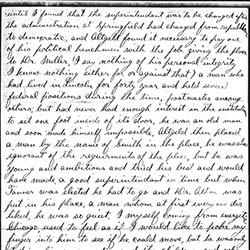 until I found that the superintendent was to be changed after
the administration at Springfield had changed from republi
to democratic, and Altgeld found it necessary to pay one
of his political henchmen with the job giving the place
to Dr. Miller, I say nothing of his personal integrity
I know nothing either for or against that) a man who
had lived in Lincoln, for forty year and held several
federal positions during the time, postmaster among
others but had never had enough interest in the institution
to set one foot inside of its door, he was an old man
and soon made himself impossible, Altgeld then placed
a man by the name of Smith in the place, he was also
ignorant of the requirements of the place, but he was
young and ambitious and did his best and would
have made a good superintendent in time but when
Tanner was elected he had to go and Dr.
was
put in his place, a man whom at first every one dis
liked, he was so quiet, I myself coming from energetic
Chicago, used to feel as if I would like to poke my
finger into him to see if he could move, but he was